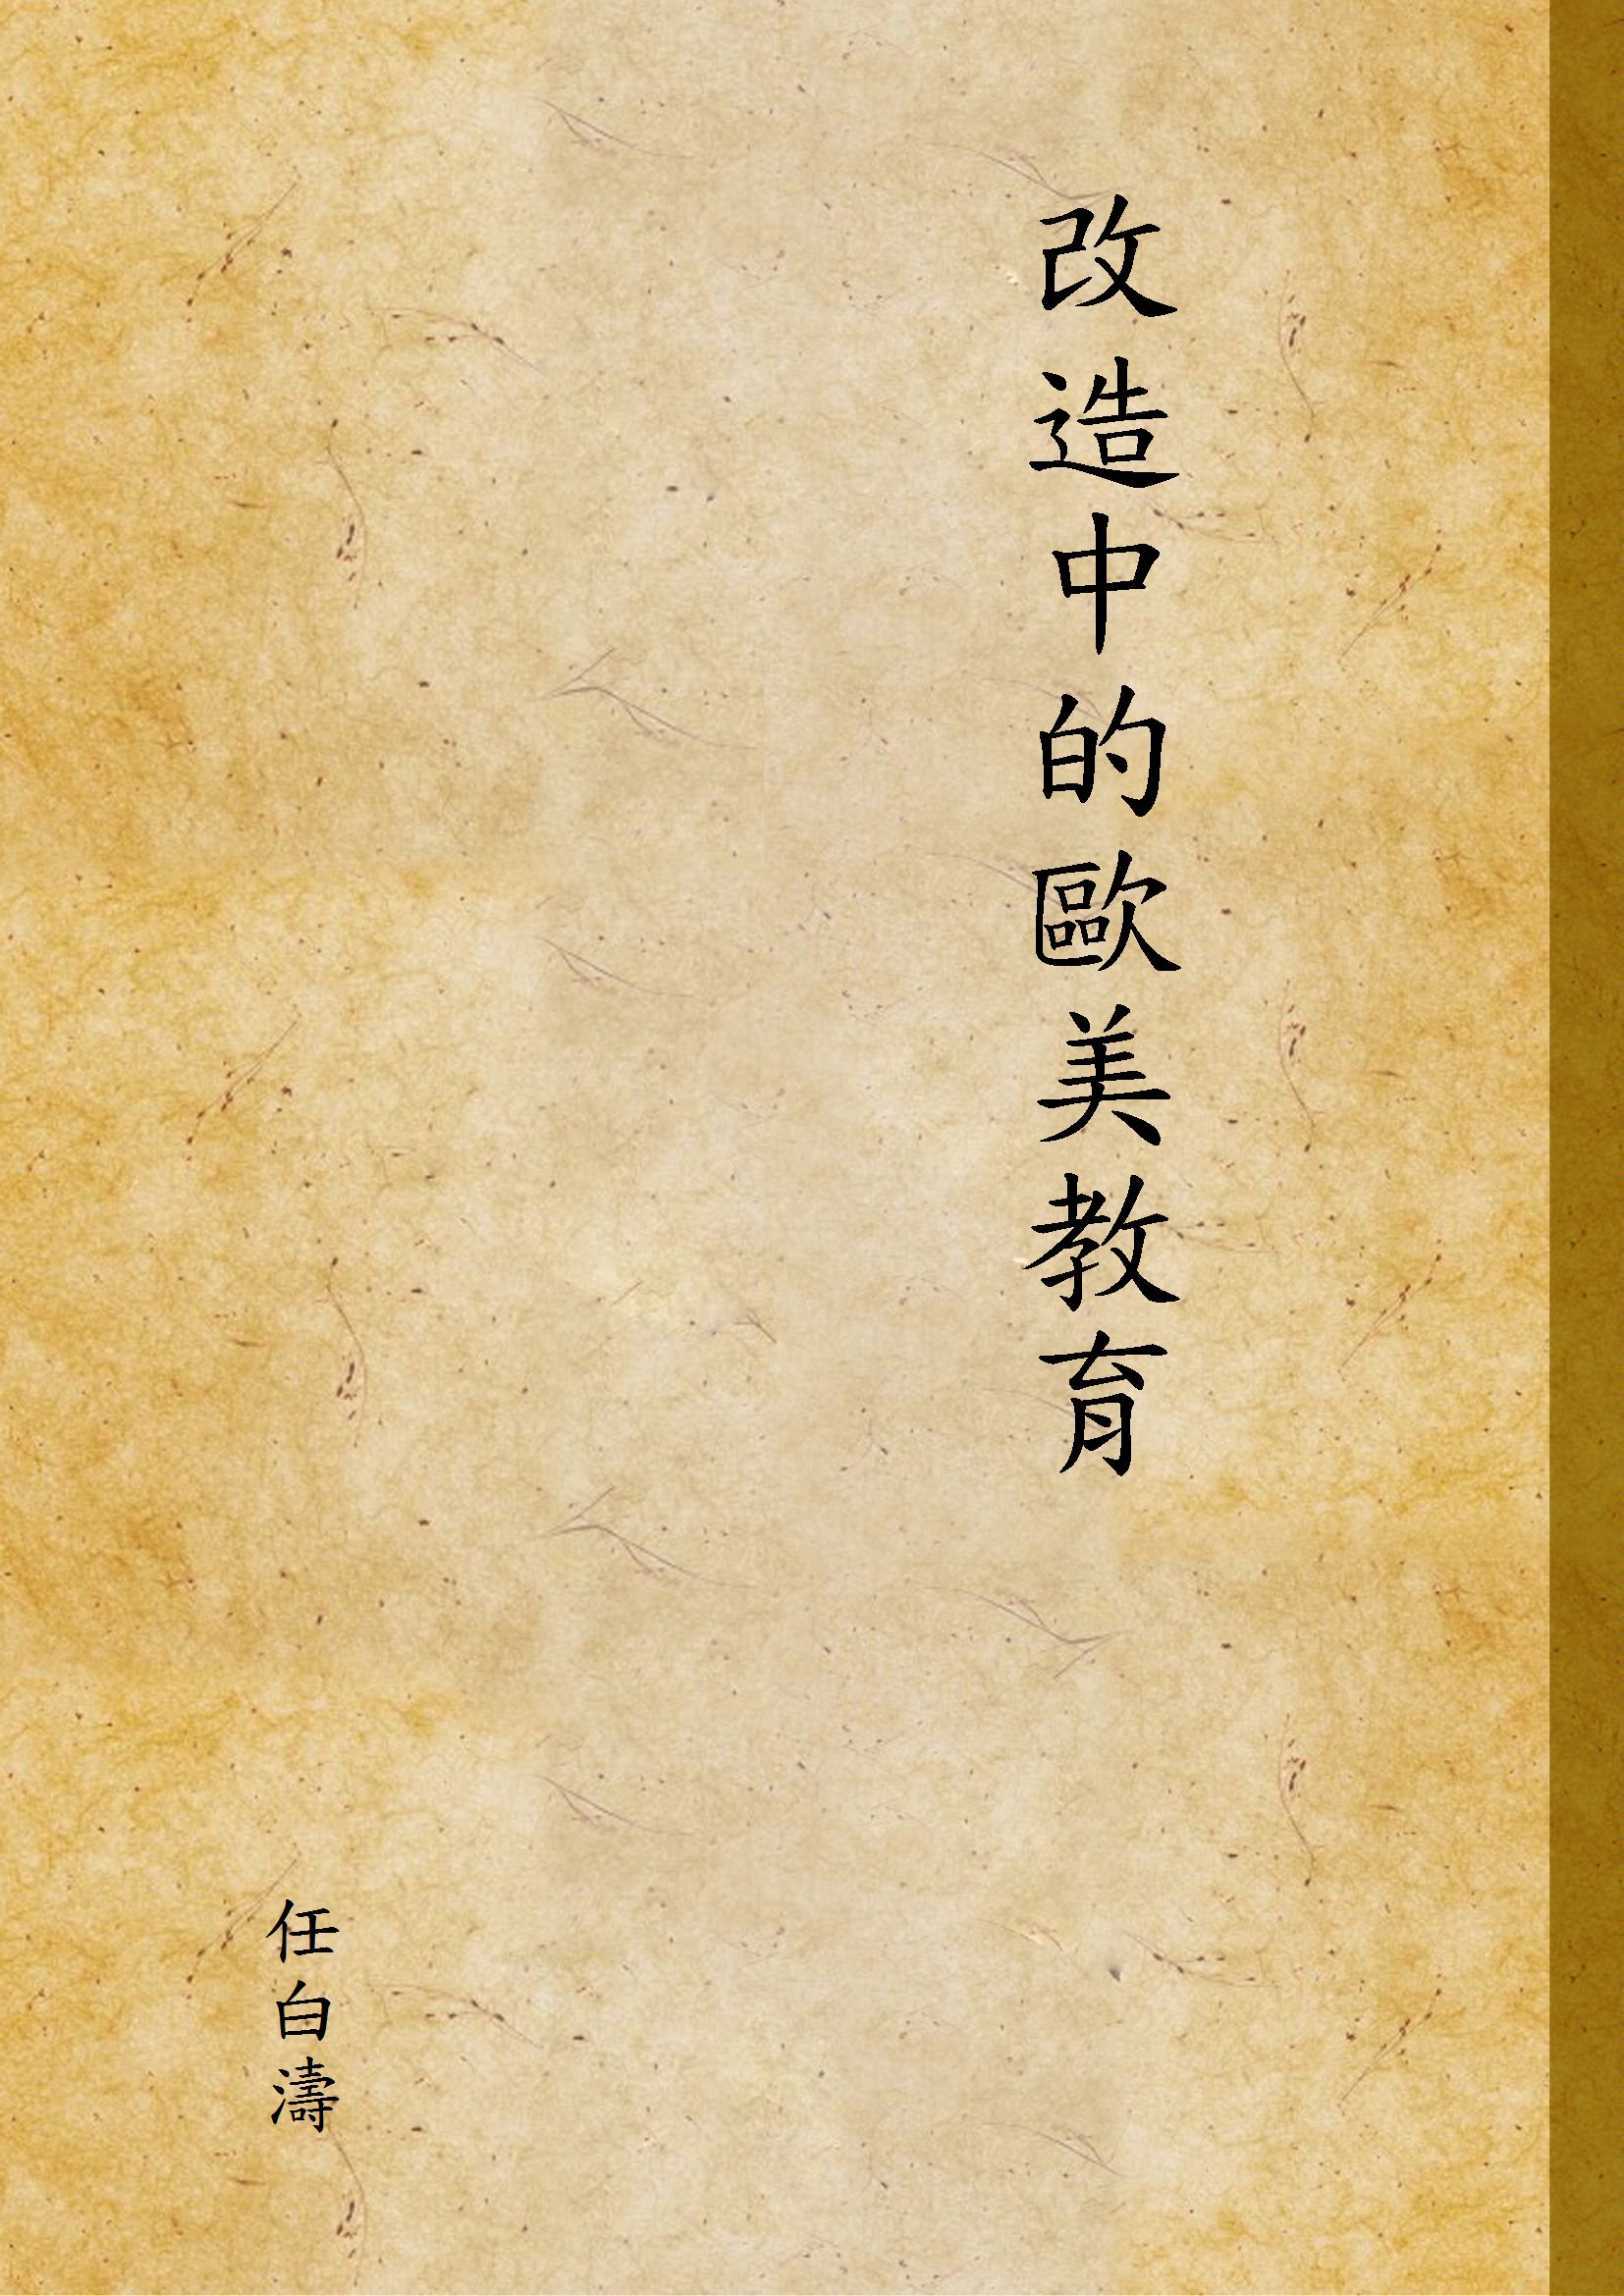 改造中的歐美教育
任白濤